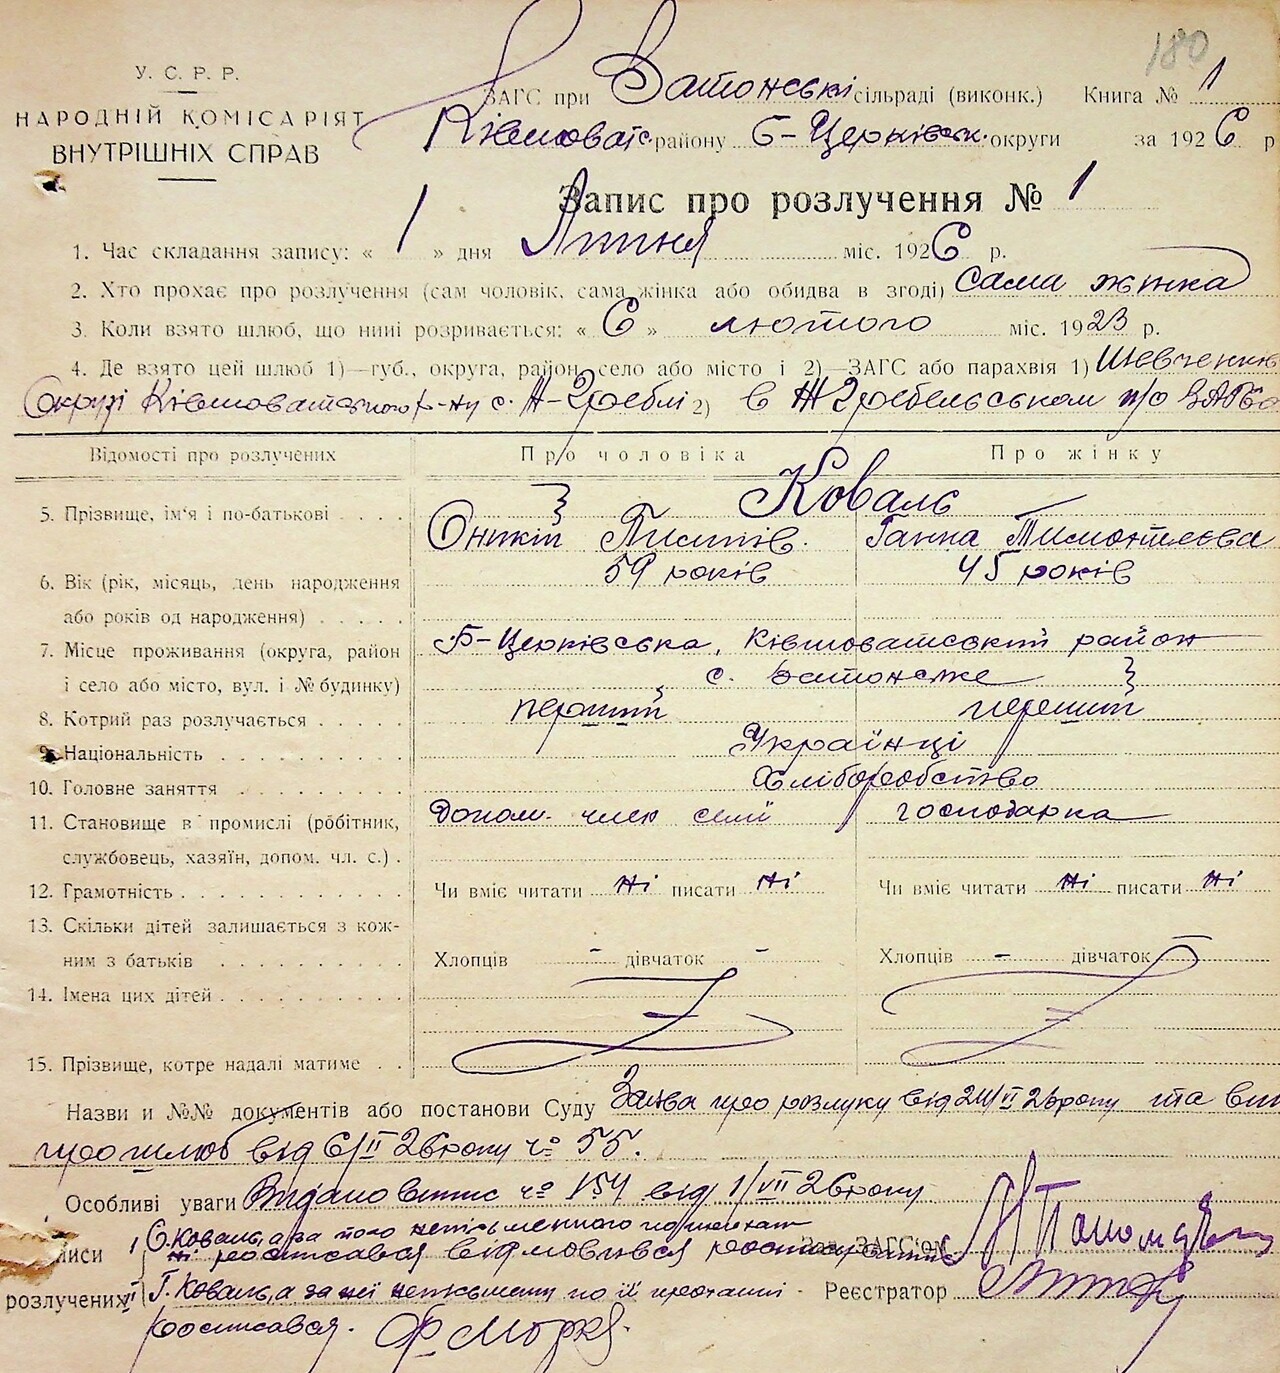 180
У. С. Р. Р.
НАРОДНІЙ КОМІСАРІЯТ
ВНУТРІШНІХ СПРАВ
ЗАГС при Затонські сільраді (виконк.) Книга № 1
Ківшоватс. району Б-Церківськ. округи за 1926 р
Запис про розлучення № 1
1. Час складання запису: « 1 » дня Липня міс. 1926 р.
2. Хто прохає про розлучення (сам чоловік, сама жінка або обидва в згоді) сама жінка
3. Коли взято шлюб, що нині розривається: « 6 » лютого міс. 1923 р.
4. Де взято цей шлюб 1)—губ., округа, район, село або місто і 2)—ЗАГС або парахвія 1) Шевченків
Окрузі Ківшоватського р-ну с. Ж-Греблі 2) в ЖГребельському п/о ЗАГС
Відомості про розлучених Про чоловіка Про жінку
Коваль
5. Прізвище, ім'я і по-батькові Ганна Тимофтеєва
6. Вік (рік, місяць, день народження 59 років 45 років
або років од народження)
7. Місце проживання (округа, район Б-Церківська, Ківшоватський район
і село або місто, вул. і № будинку) с. Затонське
8. Котрий раз розлучається перший перший
9. Національність Українці
10. Головне заняття Хліборобство
11. Становище в промислі (робітник, Допом. член семї господарка
службовець, хазяїн, допом. чл. с.)
12. Грамотність Чи вміє читати ні писати ні Чи вміє читати ні писати ні
13. Скільки дітей залишається з кож-
ним з батьків Хлопців - дівчаток - Хлопців - дівчаток
14. Імена цих дітей
15. Прізвище, котре надалі матиме
Назви и №№ документів або постанови Суду Заява про розлуку від VI 26 року та
про шлюб від 6/II 26 року ч° 55.
Особливі уваги Видано витис ч° 154 від 1/VII 26 року
Є. Коваль, а за його неписьменного
росписався відмовився Зав. ЗАГС'ом
розлучених II Г. Коваль, а за неї неписьмену по її проханні Реєстратор
росписався.